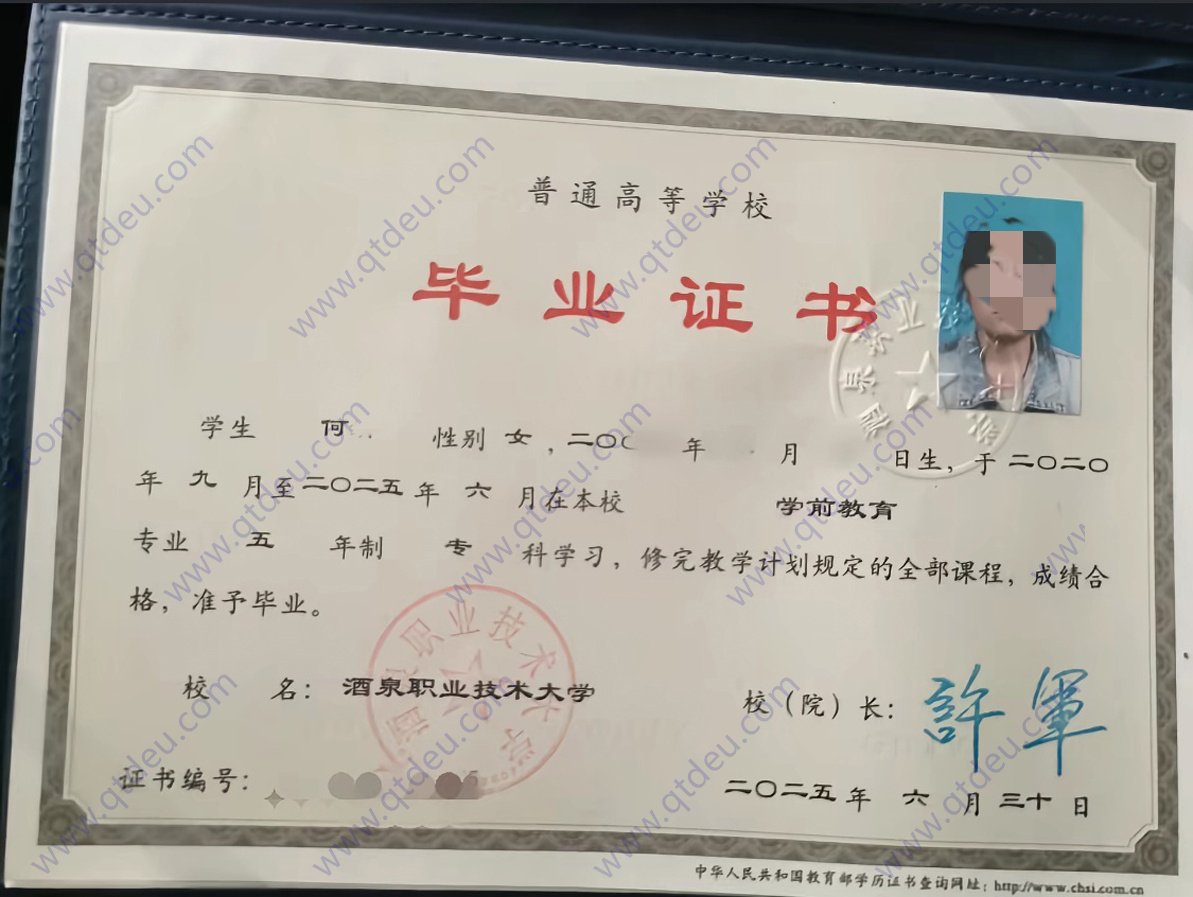 普通高等学校
毕业证书
学生 何 性别 女，二〇〇 年 月 日生，于二〇二〇
年 九 月至二〇二五年 六 月在本校 学前教育
专业 五 年制 专 科学习，修完教学计划规定的全部课程，成绩合
格，准予毕业。
校 名：酒泉职业技术大学
校（院）长：許軍
证书编号：
二〇二五年 六 月 三十 日
中华人民共和国教育部学历证书查询网址：http://www.chsi.com.cn
www.qtdeu.com